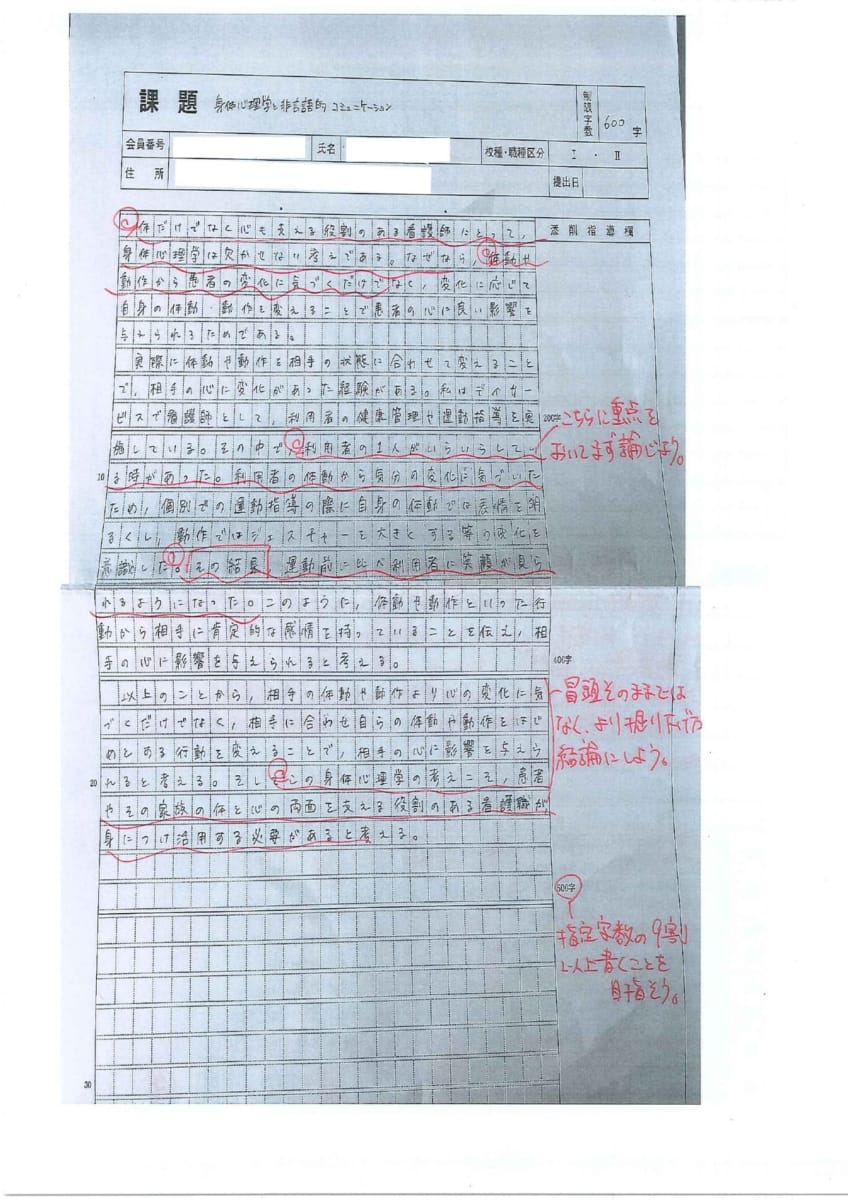 課題 身体心理学と非言語的コミュニケーション
制限字数 600字
会員番号 氏名 校種・職種区分 Ⅰ・Ⅱ
住所 提出日
添削指導欄
体だけでなく心も支える役割のある看護師にとって,
身体心理学は欠かせない考えである。なぜなら,体動や
動作から患者の変化に気づくだけでなく,変化に応じて
自身の体動・動作を変えることで患者の心に良い影響を
与えられるためである。
実際に体動や動作を相手の状態に合わせて変えること
で,相手の心に変化があった経験がある。私はデイサー
ビスで看護師として,利用者の健康管理や運動指導を実
200字
施している。その中で,利用者の1人がいらいらしてい
10 る時があった。利用者の体動から気分の変化に気づいた
ため,個別での運動指導の際に自身の体動では表情を明
るくし,動作ではジェスチャーを大きくする等の変化を
意識した。その結果 運動前に比べ利用者に笑顔が見ら
れるようになった。このように,体動や動作といった行
動から相手に肯定的な感情を持っていることを伝え,相
手の心に影響を与えられると考える。
400字
以上のことから,相手の体動や動作より心の変化に気
づくだけでなく,相手に合わせ自らの体動や動作をはじ
めとある行動を変えることで,相手の心に影響を与えら
20 れると考える。そしてこの身体心理学の考えこそ,患者
やその家族の体と心の両面を支える役割のある看護職が
身につけ活用する必要があると考える。
こちらに重点を
おいてまず論じよう。
冒頭そのままでは
なく、より掘り下げた
結論にしよう。
600字
指定字数の9割
以上書くことを
目指そう。
30